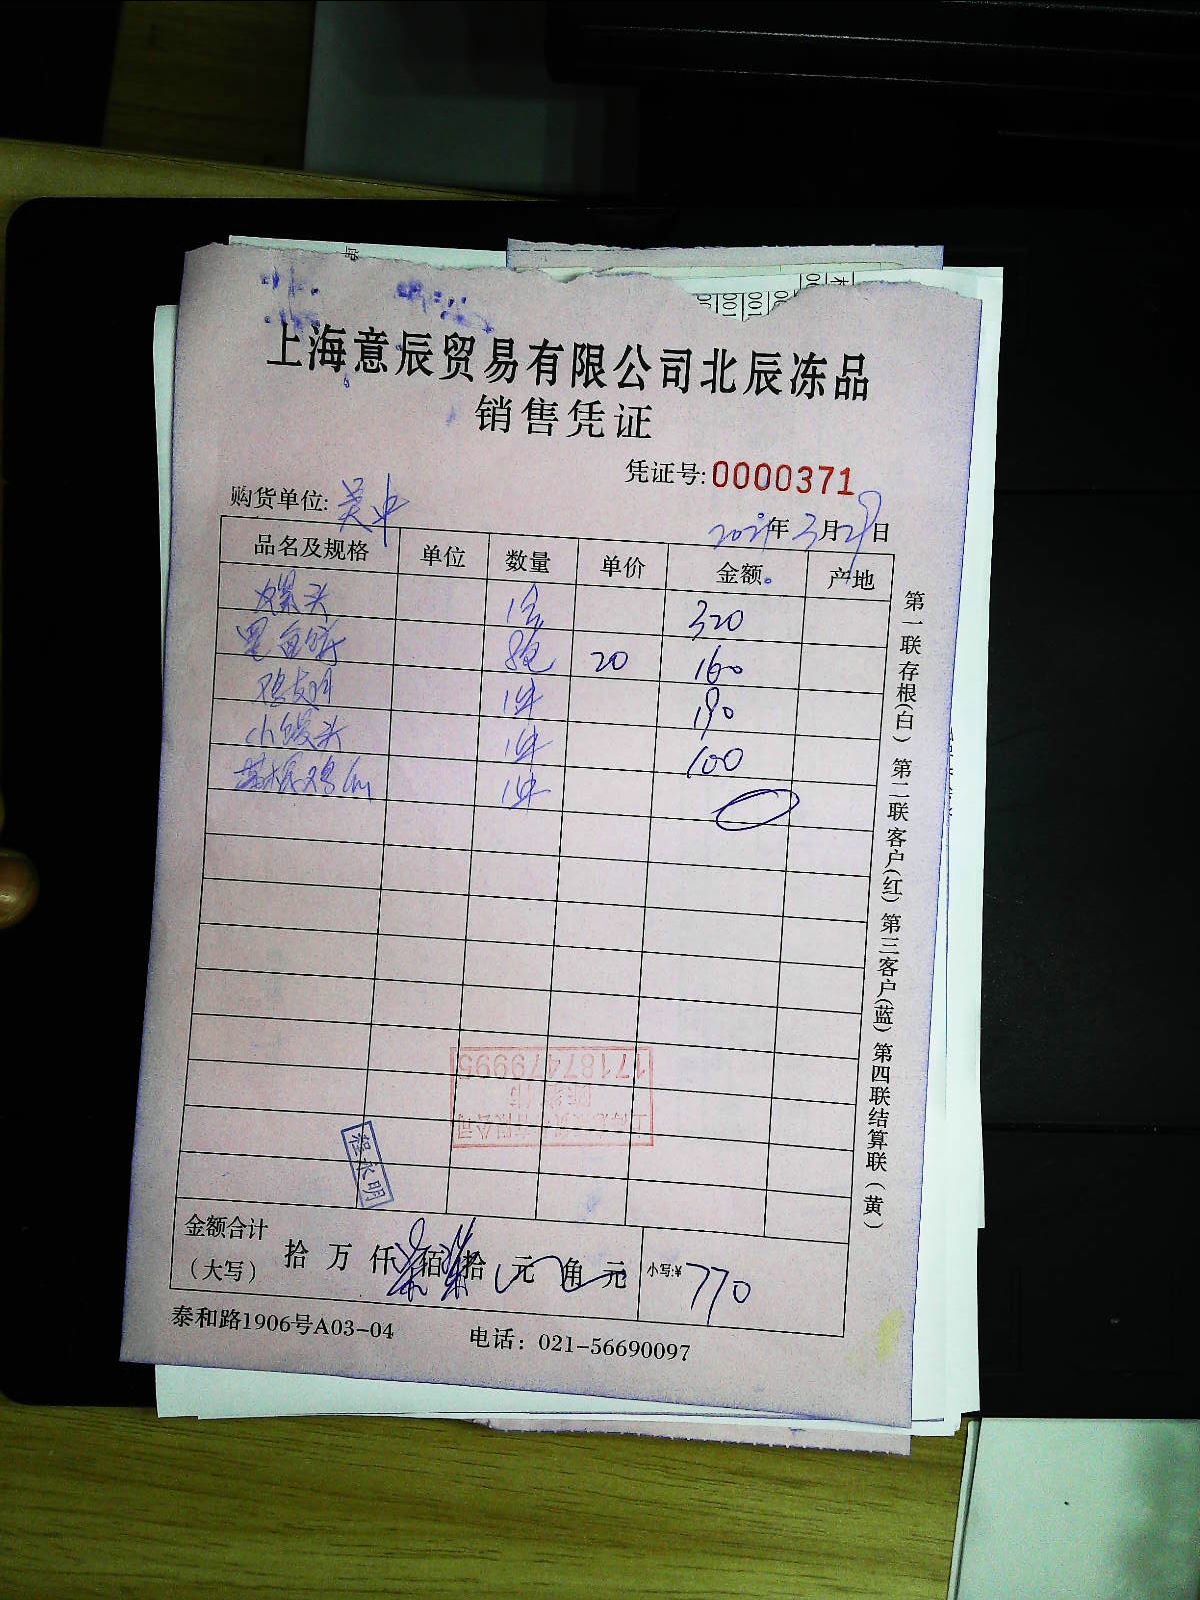 上海意辰贸易有限公司北辰冻品
销售凭证
凭证号:0000371
购货单位:
年3月29日
品名及规格 单位 数量 单价 金额 产地
320
8包 20 160
1件 190
小馒头 1件 100
1件
17187479995
程永明
金额合计
(大写) 拾 万 仟 佰 拾 元 角 元 小写:¥ 770
泰和路1906号A03-04 电话：021-56690097
第一联存根(白) 第二联客户(红) 第三客户(蓝) 第四联结算联(黄)